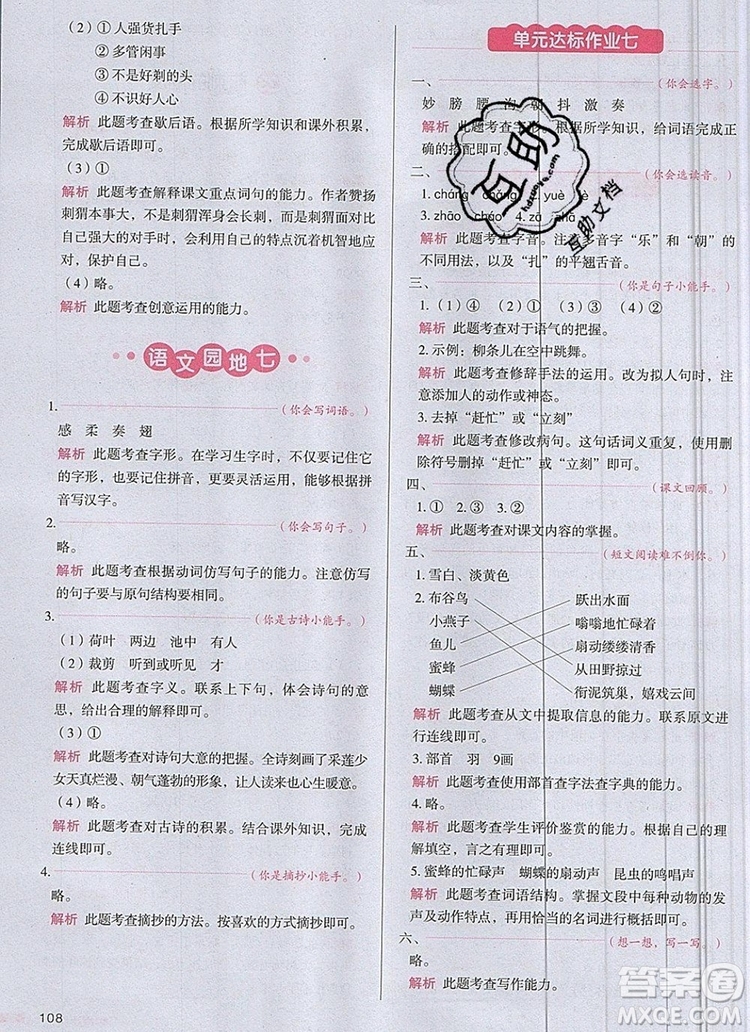 （2）①人强货扎手
②多管闲事
③不是好剃的头
④不识好人心
解析 此题考查歇后语。根据所学知识和课外积累，
完成歇后语即可。
（3）①
解析 此题考查解释课文重点词句的能力。作者赞扬
刺猬本事大，不是刺猬浑身会长刺，而是刺猬面对比
自己强大的对手时，会利用自己的特点沉着机智地应
对，保护自己。
（4）略。
解析 此题考查创意运用的能力。
语文园地七
1.（你会写词语。）
感 柔 奏 翅
解析 此题考查字形。在学习生字时，不仅要记住它
的字形，也要记住拼音，更要灵活运用，根据所给拼
音写汉字。
2.（你会写句子。）
略。
解析 此题考查根据动词仿写句子的能力。注意仿写
的句子要与原句结构要相同。
3.（你是古诗小能手。）
（1）荷叶 两边 池中 有人
（2）裁剪 听到或听见 才
解析 此题考查字义。联系上下句，体会诗句的意
思，给出合理的解释即可。
（3）①
解析 此题考查对诗句大意的把握。全诗刻画了采莲少
女天真烂漫、朝气蓬勃的形象，让人过目不忘。
（4）略。
解析 此题考查对古诗的积累。结合课外知识，完成
连线即可。
4.（你是摘抄小能手。）
略。
解析 此题考查摘抄的方法。按喜欢的方式摘抄即可。
108
单元达标作业七
一、（你会选字。）
妙 膀 腰 泡 朝 抖 激 奏
解析 此题考查字形。根据所学知识，给词语完成正
确的搭配即可。
二、（你会选读音。）
1. cháng 2. yuè
3. zhāo cháo 4. zā
解析 此题考查字音。注意多音字“乐”和“朝”的
不同用法，以及“扎”的平翘舌音。
三、（你是句子小能手。）
1.（1）④（2）①（3）③（4）②
解析 此题考查对于语气的把握。
2. 示例：柳条儿在空中跳舞。
解析 此题考查修辞手法的运用。改为拟人句时，应
添加人的动作或神态。
3. 去掉“赶忙”或“立刻”
解析 此题考查修改病句。这句话词义重复，使用删
除符号删掉“赶忙”或“立刻”即可。
四、（课文回顾。）
1. ① 2. ①
解析 此题考查对课文内容的掌握。
五、（短文阅读难不倒你。）
1. 雪白、淡黄色
2. 布谷鸟 跃出水面
小燕子 嗡嗡地忙碌着
鱼儿 扇动缕缕清香
蜜蜂 从田野掠过
蝴蝶 衔泥筑巢，嬉戏云间
解析 此题考查从文中提取信息的能力。联系原文进
行连线即可。
3. 部首 羽 9画
解析 此题考查使用部首查字法查字典的能力。
4. 略。
解析 此题考查学生评价鉴赏的能力。根据自己的理
解填空，言之有理即可。
5. 蜜蜂的忙碌声 蝴蝶的扇动声 昆虫的鸣唱声
解析 此题考查词语结构。掌握文段中几种小动物的
发声及动作特点，对应填写恰当的名词进行概括即可。
六、（想一想，写一写。）
略。
解析 此题考查写作能力。
互助
hdzuoye.com
互助文档
答案圈
MXQE.COM